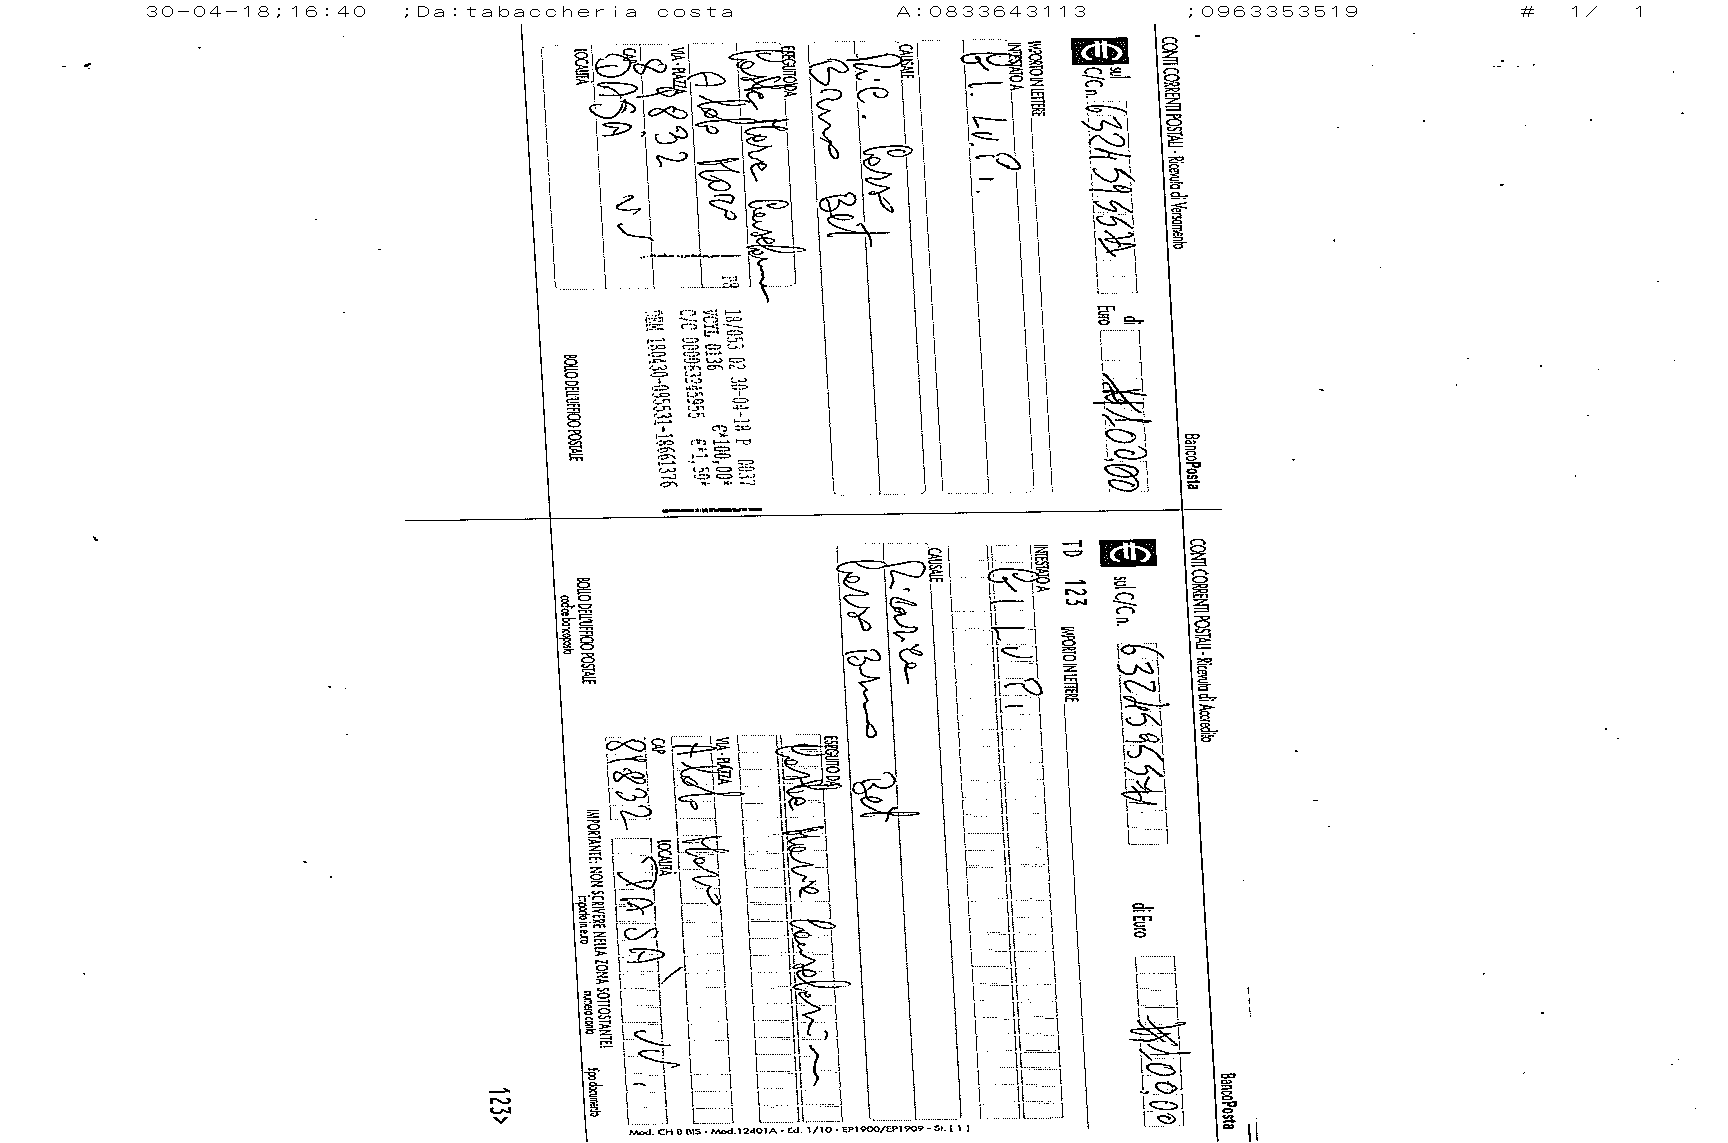 30-04-18;16:40 ;Da:tabaccheria costa A:0833643113 ;0963353519 # 1/ 1
CONTI CORRENTI POSTALI - Ricevuta di Versamento
BancoPosta
sul C/C n. di Euro 100,00
IMPORTO IN LETTERE
INTESTATO A
GI. LU. P.
CAUSALE
Ric. Corso
Bruno Bet
ESEGUITO DA
VIA - PIAZZA
Aldo Moro
CAP
LOCALITÀ
DASA VV
18/053 02 30-04-18 P 0037
VCYL 0136 €*100,00*
C/C 000063245955 €*1,50*
180430-095531-18661376
BOLLO DELL'UFFICIO POSTALE
CONTI CORRENTI POSTALI - Ricevuta di Accredito
BancoPosta
sul C/C n. di Euro 100,00
TD 123 IMPORTO IN LETTERE
INTESTATO A
GI LU P.
CAUSALE
Ricarica
Corso Bruno Bet
ESEGUITO DA
VIA - PIAZZA
Aldo Moro
CAP LOCALITÀ
DASA' VV.
BOLLO DELL'UFFICIO POSTALE
codice bancoposta
IMPORTANTE: NON SCRIVERE NELLA ZONA SOTTOSTANTE!
importo in euro numero conto tipo documento
123>
Mod. CH 8 BIS - Mod.12401A - Ed. 1/10 - EP1900/EP1909 - St. [ 1 ]